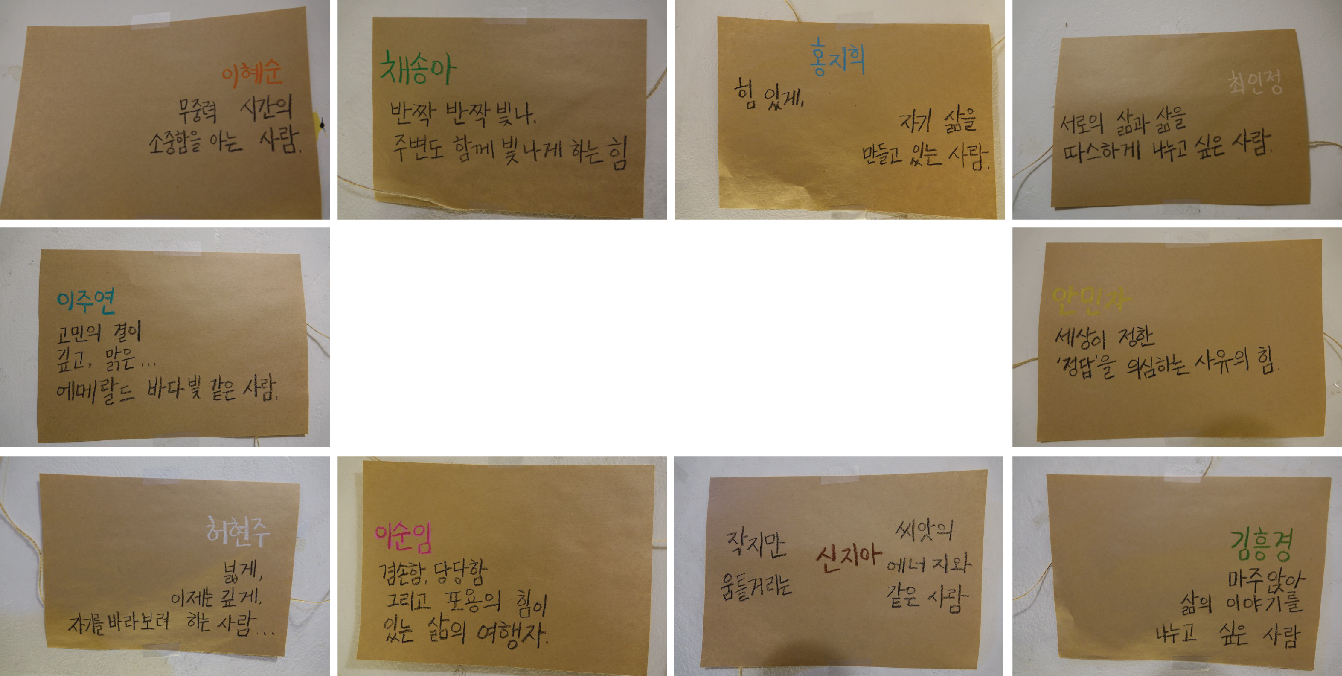 이혜순
무중력 시간의
소중함을 아는 사람.
채송아
반짝 반짝 빛나.
주변도 함께 빛나게 하는 힘
홍지희
힘 있게,
자기 삶을
만들고 있는 사람.
최인정
서로의 삶과 삶을
따스하게 나누고 싶은 사람.
이주연
고민의 결이
깊고, 맑은...
에메랄드 바다빛 같은 사람.
안민자
세상이 정한
'정답'을 의심하는 사유의 힘.
허현주
넓게,
이제는 깊게.
자기를 바라보려 하는 사람...
이순임
겸손함, 당당함
그리고 포용의 힘이
있는 삶의 여행자.
작지만
움틀거리는
신지아
씨앗의
에너지와
같은 사람
김흥경
마주 앉아
삶의 이야기를
나누고 싶은 사람